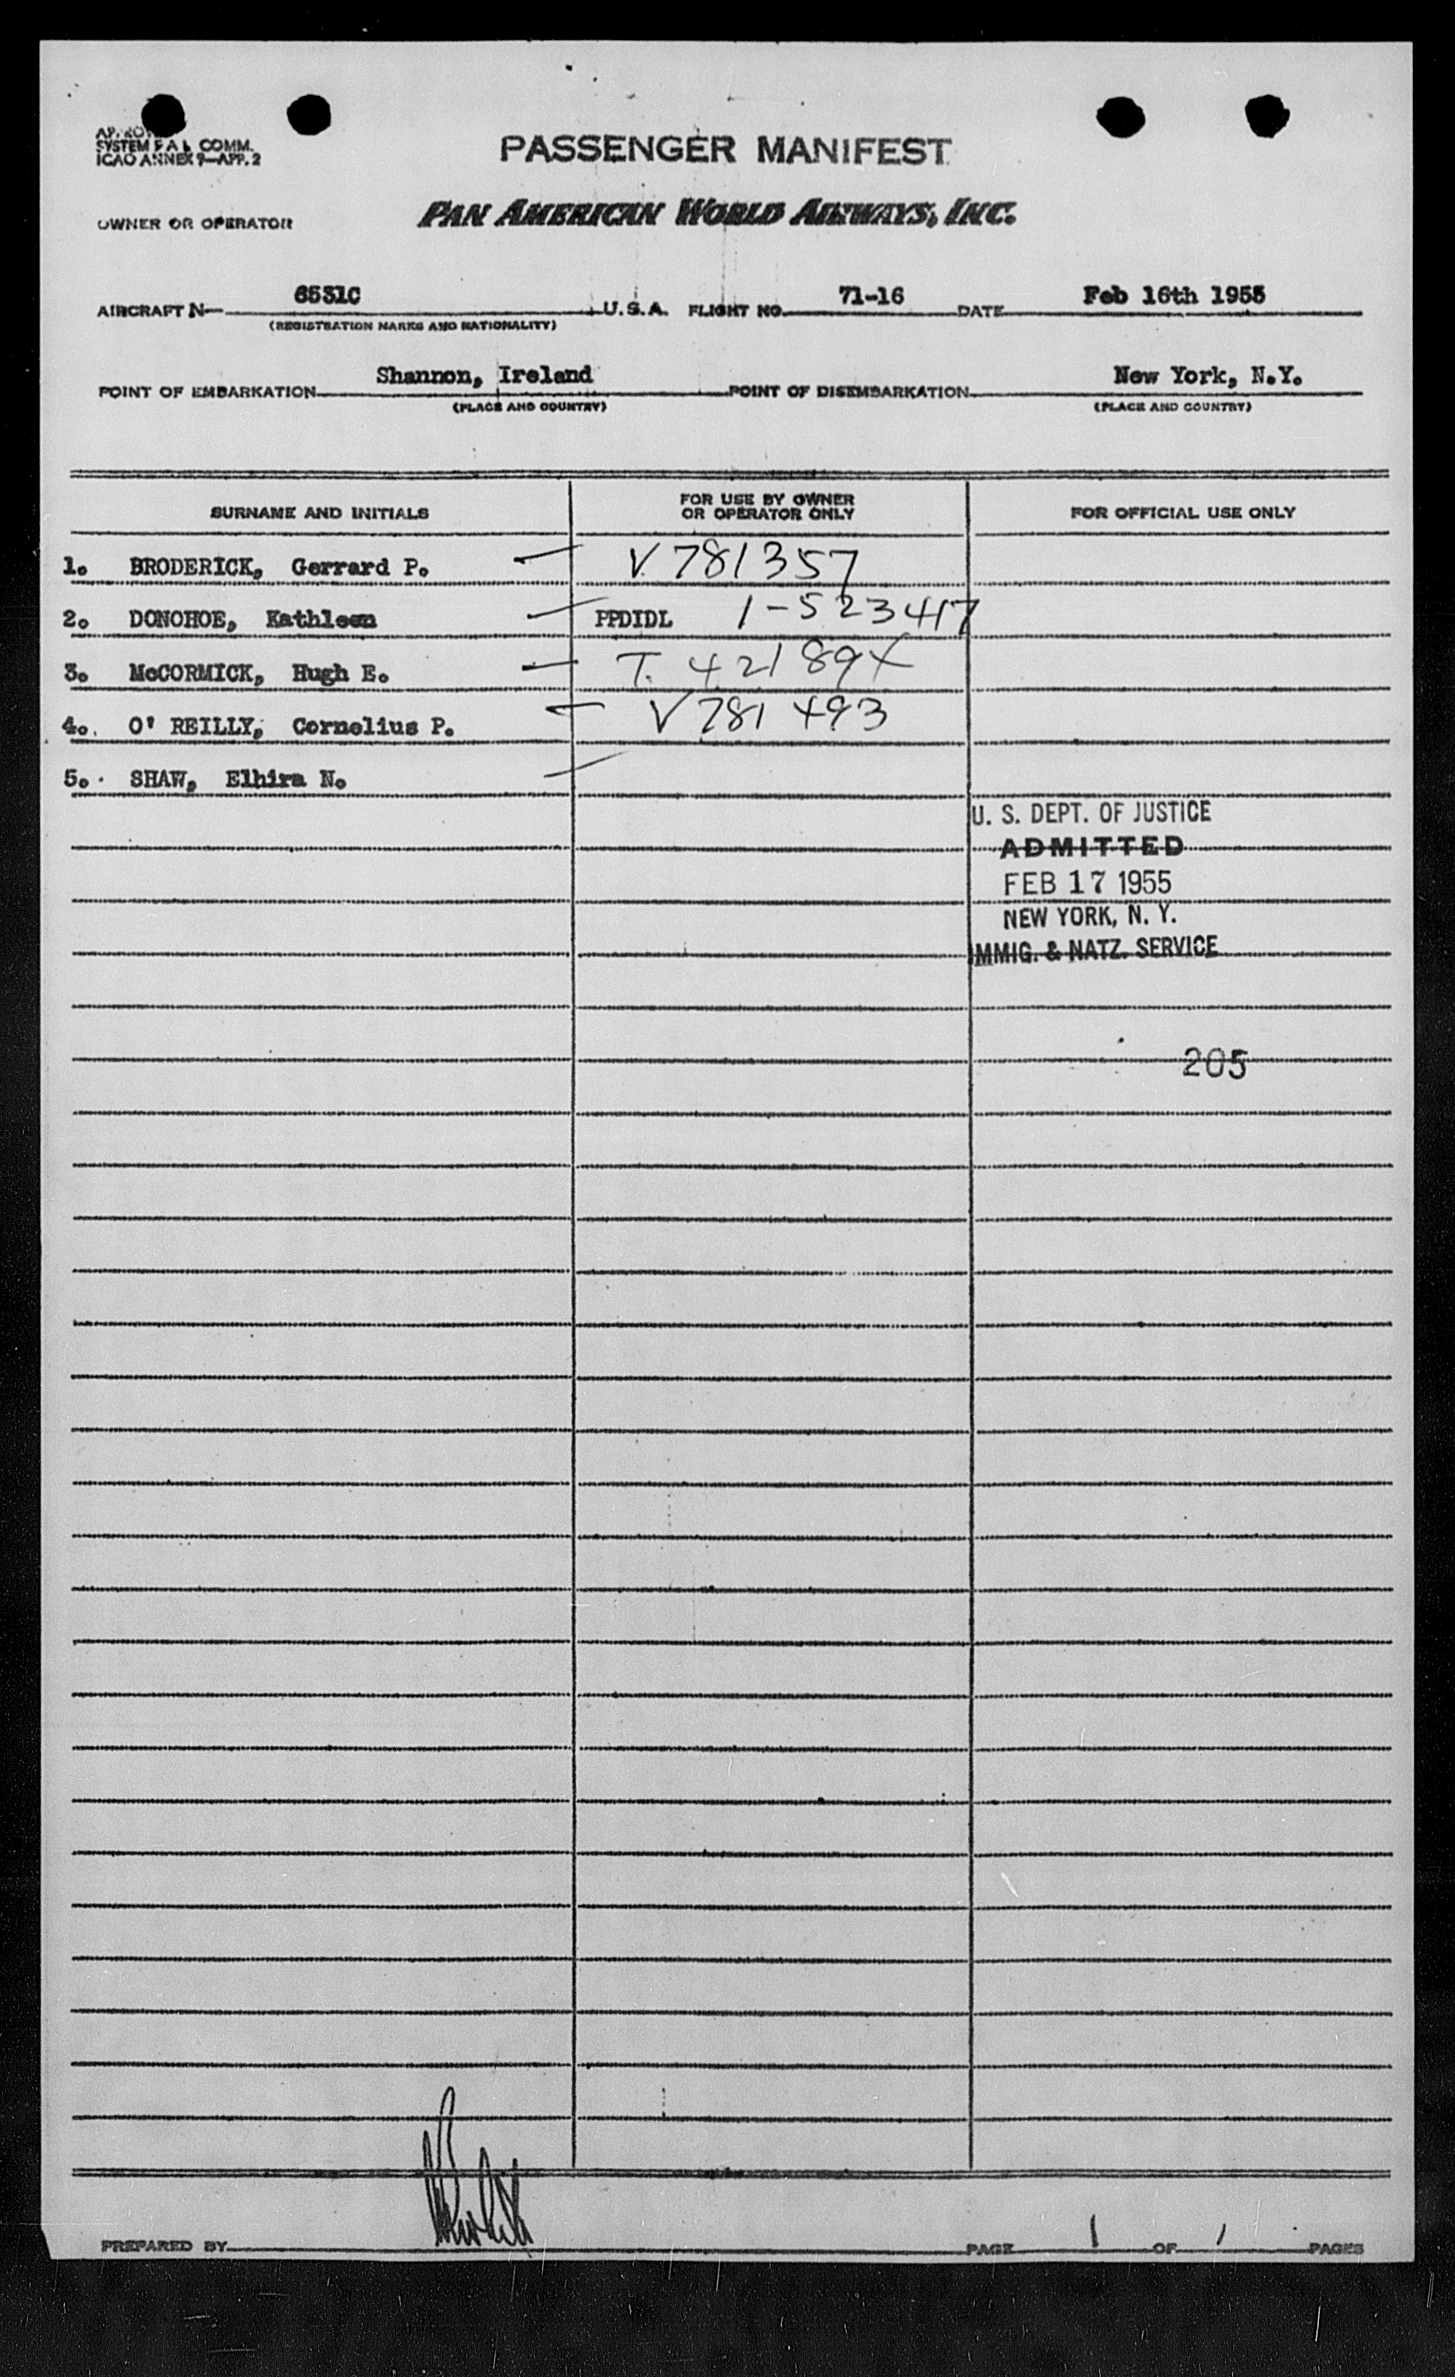 SYSTEM F A L COMM.
ICAO ANNEX 9—APP. 2
PASSENGER MANIFEST
OWNER OR OPERATOR PAN AMERICAN WORLD AIRWAYS, INC.
AIRCRAFT N— 6531C U.S.A. FLIGHT NO. 71-16 DATE Feb 16th 1955
(REGISTRATION MARKS AND NATIONALITY)
POINT OF EMBARKATION Shannon, Ireland POINT OF DISEMBARKATION New York, N.Y.
(PLACE AND COUNTRY) (PLACE AND COUNTRY)
SURNAME AND INITIALS FOR USE BY OWNER OR OPERATOR ONLY FOR OFFICIAL USE ONLY
1. BRODERICK, Gerrard P. V. 781357
2. DONOHOE, Kathleen PPDIDL 1-523417
3. McCORMICK, Hugh E. T. 421894
4. O' REILLY, Cornelius P. V 781493
5. SHAW, Elhira N.
U. S. DEPT. OF JUSTICE
ADMITTED
FEB 17 1955
NEW YORK, N. Y.
IMMIG. & NATZ. SERVICE
205
PREPARED BY PAGE 1 OF 1 PAGES